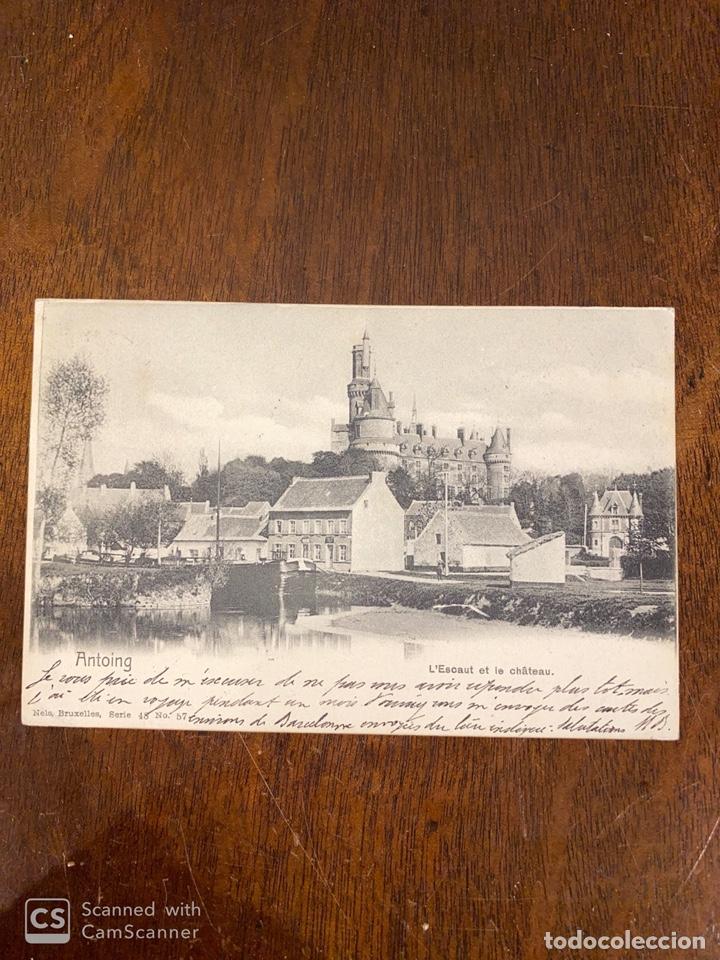 Antoing
L'Escaut et le château.
Je vous prie de m'excuser de ne pas vous avoir répondu plus tot, mais
j'ai été en voyage pendant un mois vous m'envoyer des cartes des
Nels, Bruxelles, Serie 48 No. 57
environs de Barcelonne envoyées du Salutations
CS Scanned with
CamScanner
todocoleccion